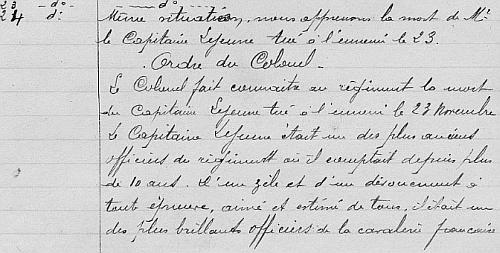 23 - d° - - d° -
24 d° Même situation, nous apprenons la mort de Mr
le Capitaine Lejeune tué à l'ennemi le 23.
Ordre du Colonel -
Le Colonel fait connaitre au régiment la mort
du Capitaine Lejeune tué à l'ennemi le 23 Novembre
Le Capitaine Lejeune était un des plus anciens
officiers du régiment où il comptait depuis plus
de 10 ans. D'un zèle et d'un dévouement à
toute épreuve, aimé et estimé de tous, il était un
des plus brillants officiers de la cavalerie française